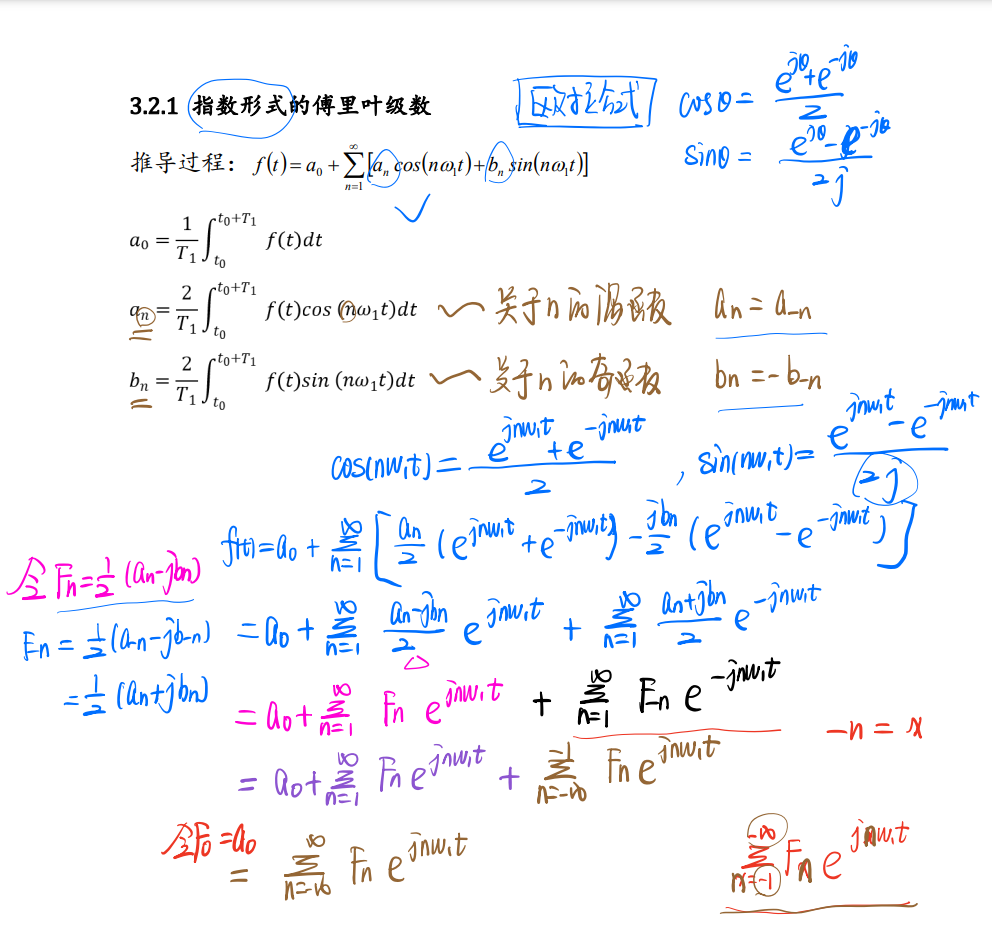 3.2.1 指数形式的傅里叶级数
欧拉公式
cosθ = (e^{jθ}+e^{-jθ})/2
sinθ = (e^{jθ}-e^{-jθ})/2j
推导过程: f(t)= a₀ + ∑_{n=1}^{∞}[aₙcos(nω₁t)+bₙsin(nω₁t)]
a₀ = 1/T₁ ∫_{t₀}^{t₀+T₁} f(t)dt
aₙ = 2/T₁ ∫_{t₀}^{t₀+T₁} f(t)cos (nω₁t)dt 关于n的偶函数 aₙ = a₋ₙ
bₙ = 2/T₁ ∫_{t₀}^{t₀+T₁} f(t)sin (nω₁t)dt 关于n的奇函数 bₙ = -b₋ₙ
cos(nω₁t) = (e^{jnω₁t}+e^{-jnω₁t})/2 , sin(nω₁t) = (e^{jnω₁t}-e^{-jnω₁t})/2j
f(t) = a₀ + ∑_{n=1}^{∞} [aₙ/2 (e^{jnω₁t}+e^{-jnω₁t}) - jbₙ/2 (e^{jnω₁t}-e^{-jnω₁t})]
令 Fₙ = 1/2 (aₙ-jbₙ)
= a₀ + ∑_{n=1}^{∞} (aₙ-jbₙ)/2 e^{jnω₁t} + ∑_{n=1}^{∞} (aₙ+jbₙ)/2 e^{-jnω₁t}
F₋ₙ = 1/2 (a₋ₙ-jb₋ₙ)
= 1/2 (aₙ+jbₙ)
= a₀ + ∑_{n=1}^{∞} Fₙ e^{jnω₁t} + ∑_{n=1}^{∞} F₋ₙ e^{-jnω₁t}
-n = x
= a₀ + ∑_{n=1}^{∞} Fₙ e^{jnω₁t} + ∑_{n=-∞}^{-1} Fₙ e^{jnω₁t}
令F₀ = a₀
= ∑_{n=-∞}^{∞} Fₙ e^{jnω₁t}
∑_{n=-1}^{-∞} Fₙ e^{jnω₁t}